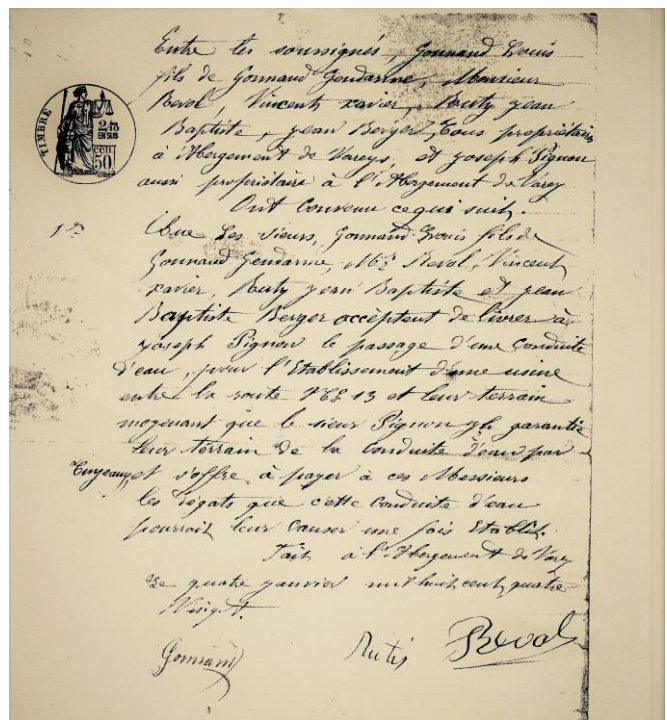 Entre les soussignés, Gonnand Louis
fils de Gonnand Gendarme, Monsieur
Revol, Vincent xavier, Ruty Jean
Baptiste, jean Berger, Tous propriétaires
à l'Abergement de Vareys, et joseph Pignon
aussi propriétaire à l'Abergement de Varey
Ont Convenu ce qui suit.
1º
Que Les sieurs, Gonnand Louis fils de
Gonnand Gendarme, Mr Revol, Vincent
xavier, Ruty jean Baptiste et jean
Baptiste Berger acceptent de livrer à
joseph Pignon le passage d'une Conduite
d'eau, pour l'Etablissement d'une usine
entre la route 13 et leur terrain
moyenant que le sieur Pignon garantie
leur terrain de la Conduite d'eau par
Tuyeaux, et s'offre à payer à ces Messieurs
les dégats que cette Conduite d'eau
pourrait leur Causer une fois Etablit.
Fait à l'Abergement de Varey
Le quatre janvier mil huit cent quatre
Vingt.
Gonnand Rutis Revol
TIMBRE
cen
50